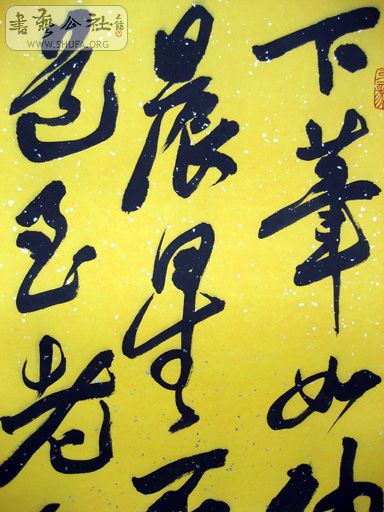 書藝公社
WWW.SHUFA.ORG
下筆如
晨星
至老